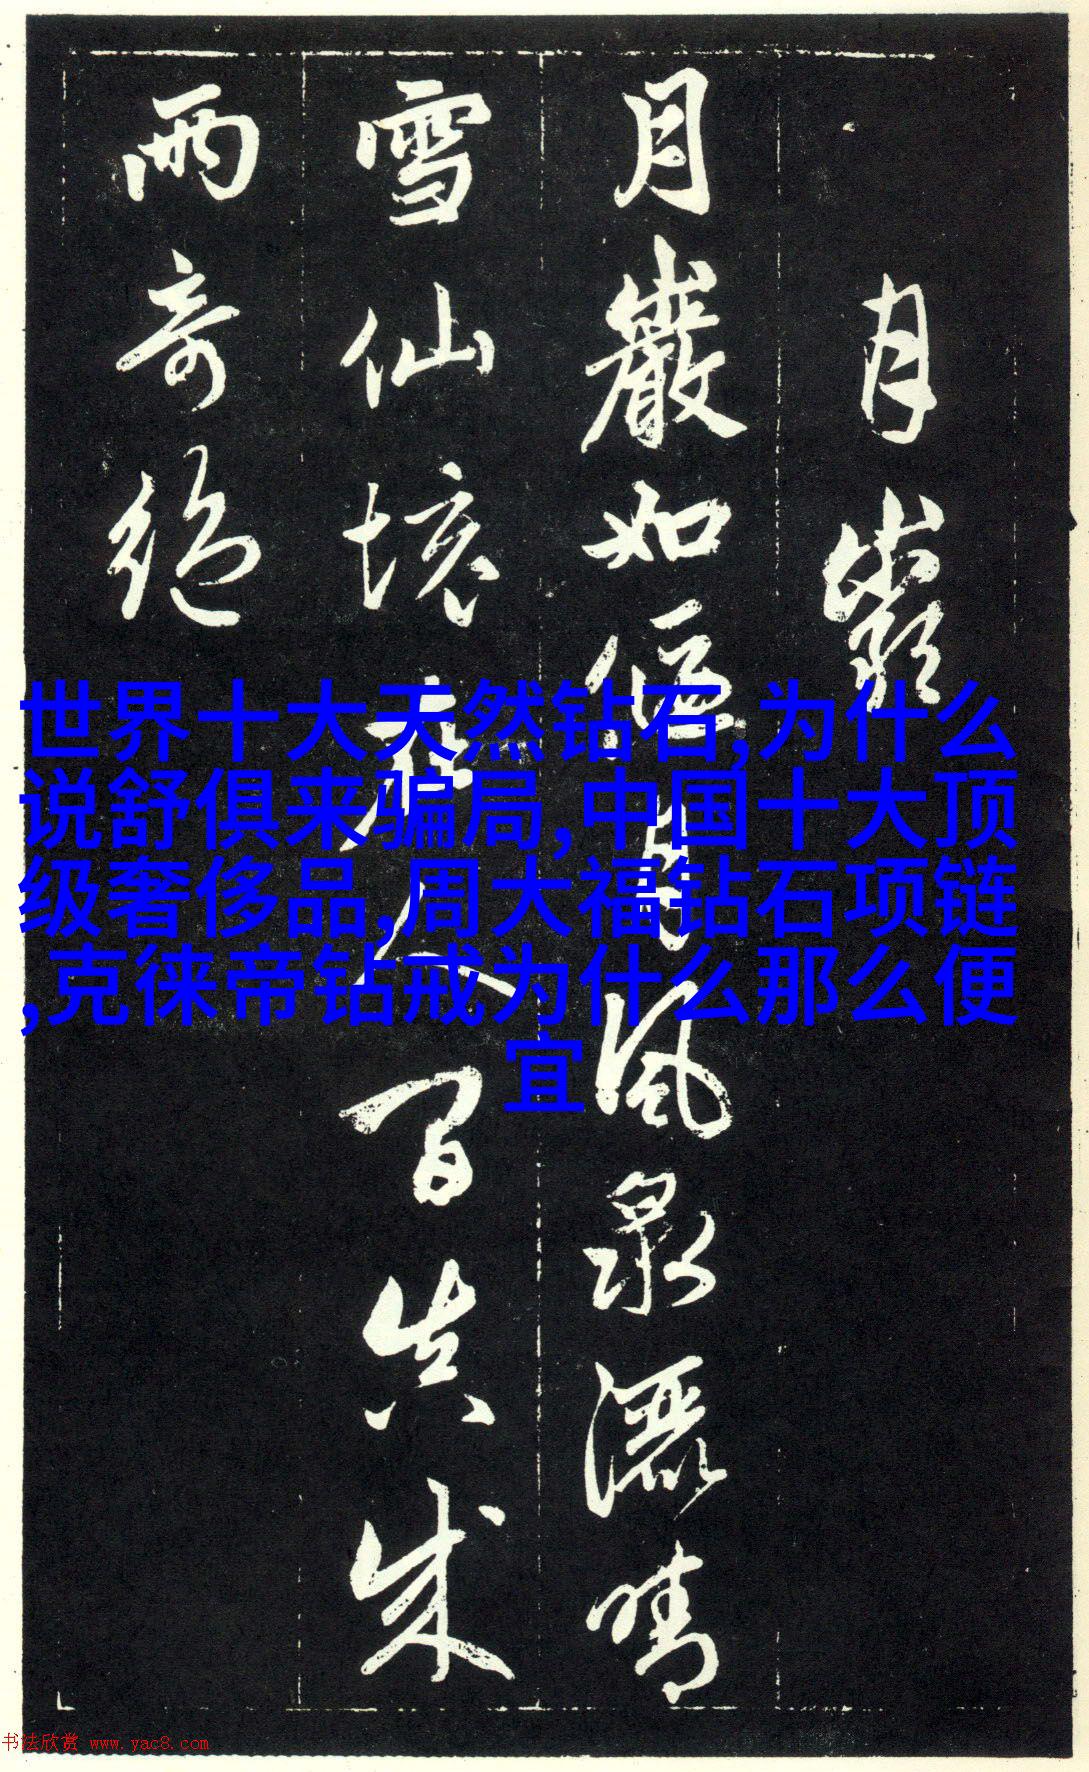 月巖
月巖如偃月風泉灑晴
雪仙境在人間真成
兩奇絕
世界十大天然钻石,为什么
说舒俱来骗局,中国十大顶
级奢侈品,周大福钻石项链
,克徕帝钻戒为什么那么便
宜
书法欣赏 www.yac8.com